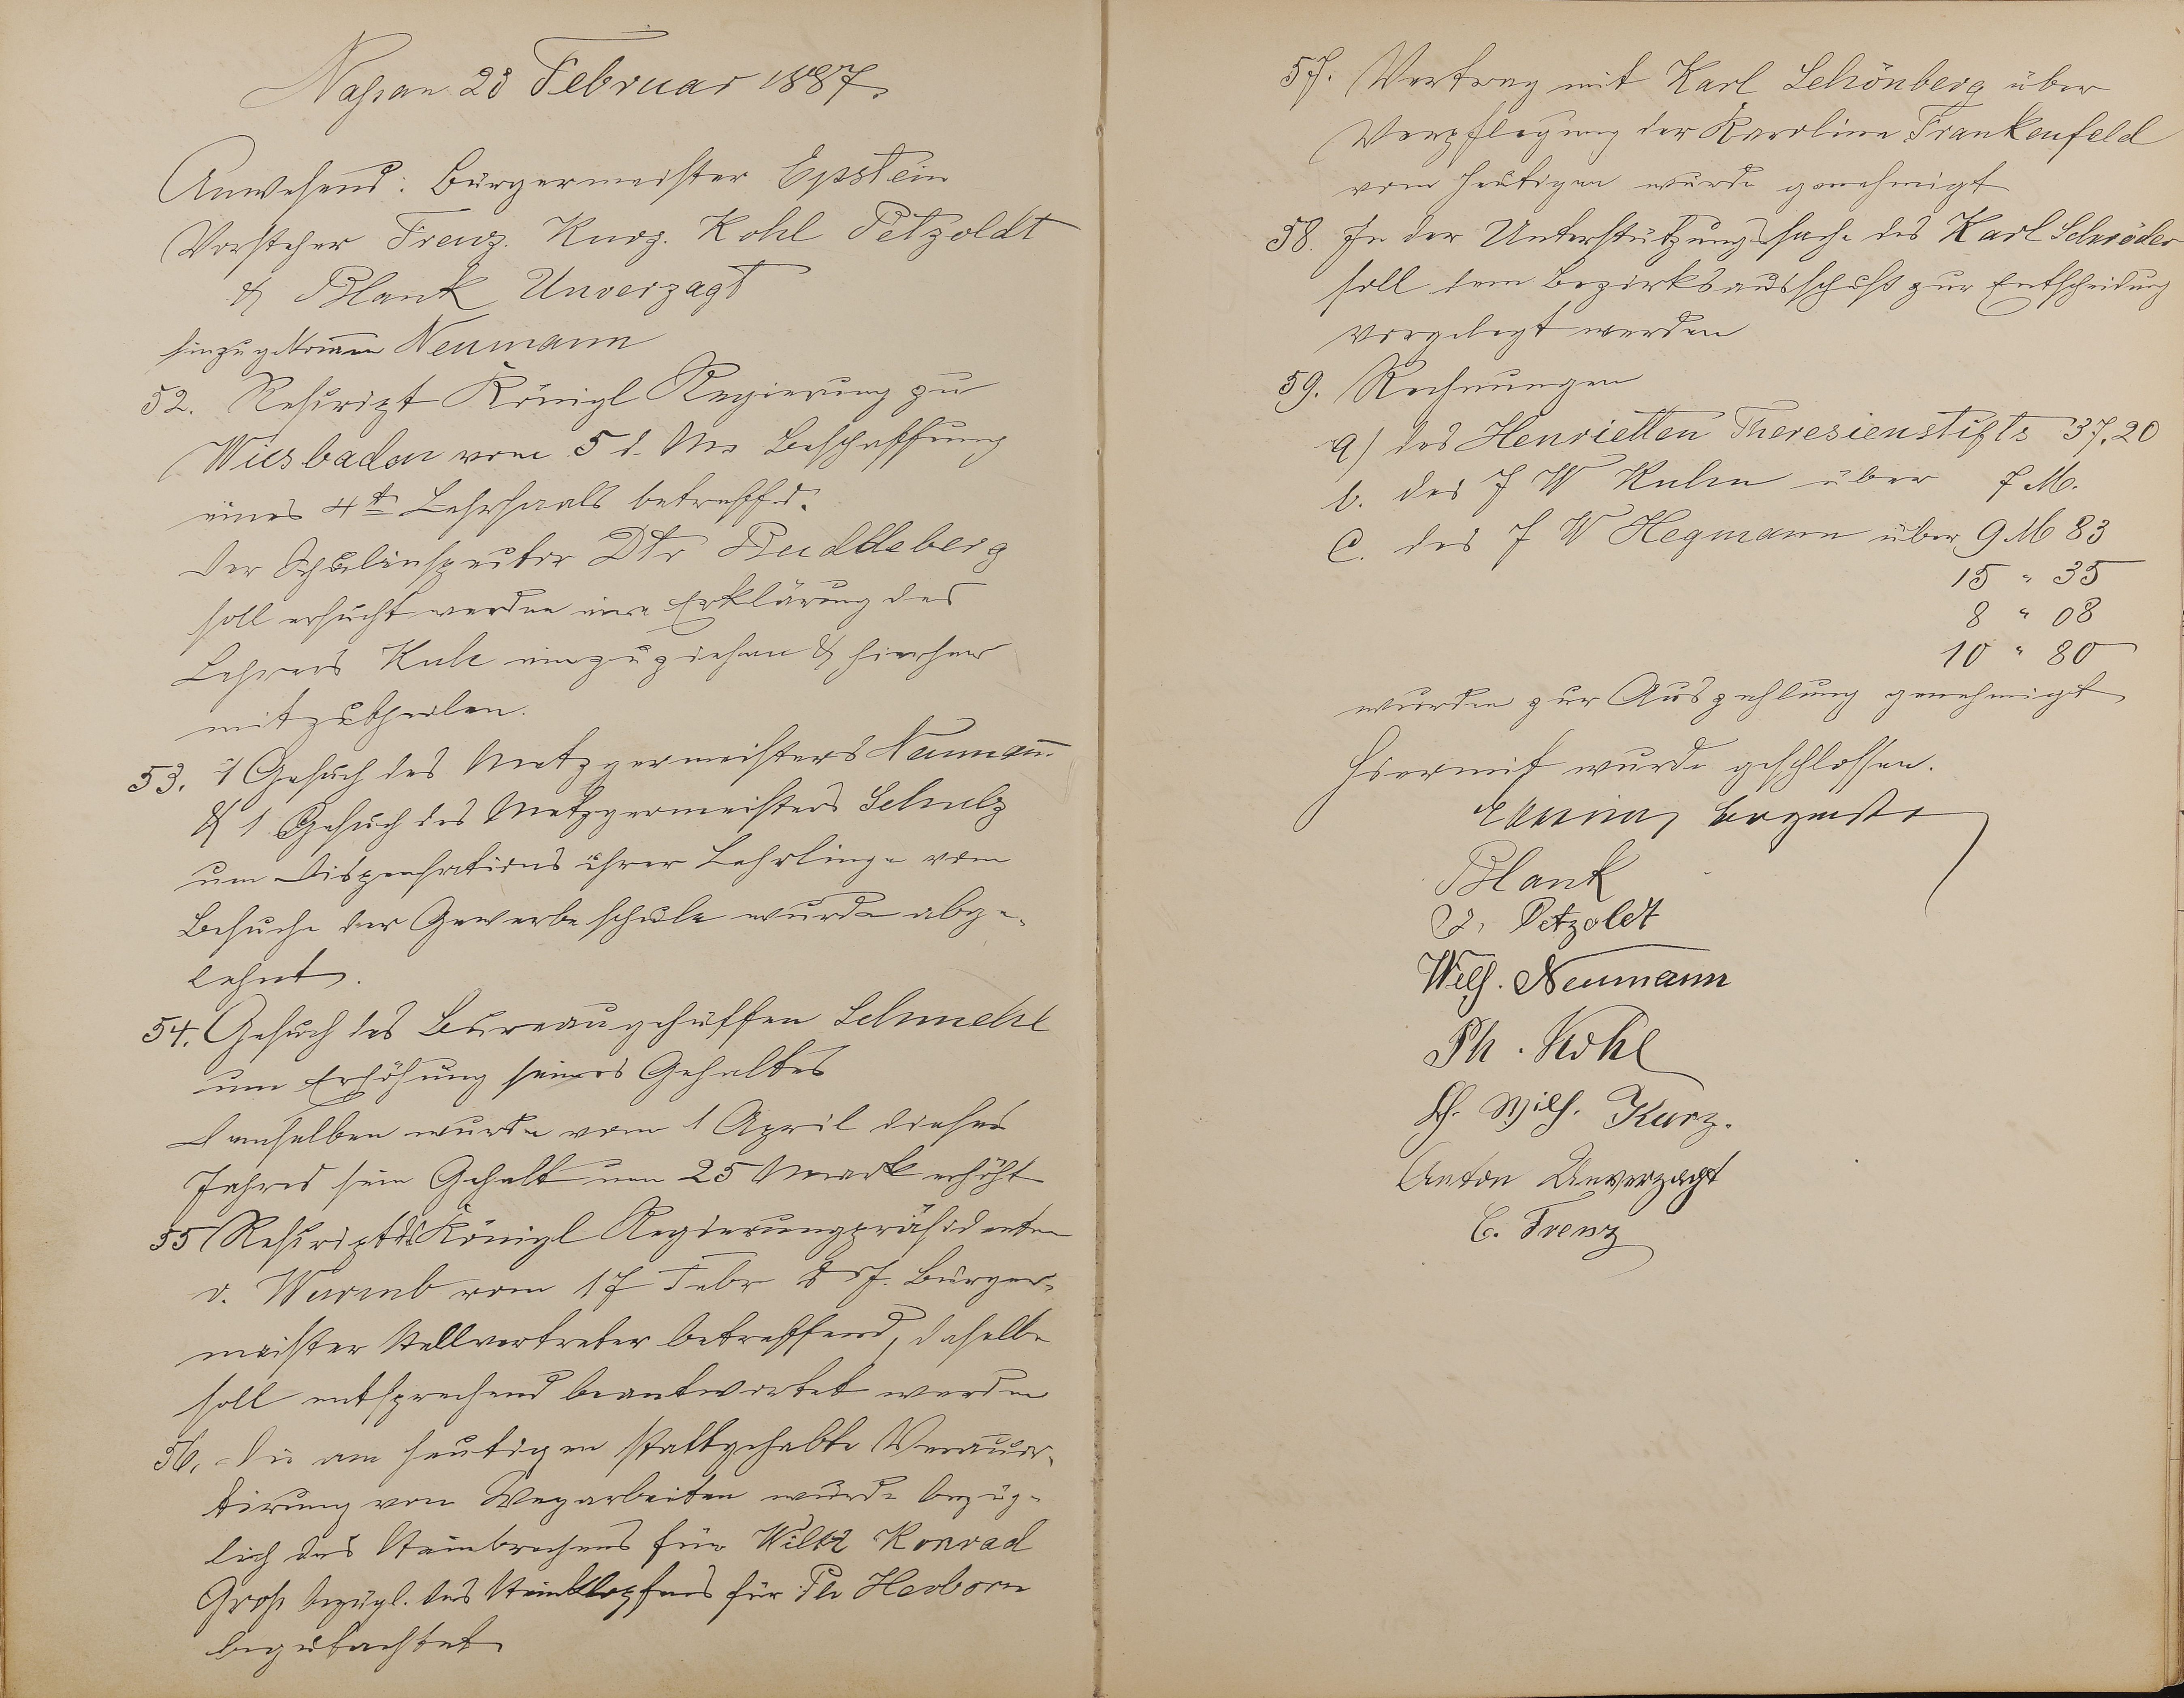 Nassau 23 Februar 1887.
Anwesend: Bürgermeister Epstein
Vorsteher Trenz. Kurz. Kohl Petzoldt
& Blank Unverzagt
hinzugekommen Neumann
52. Rescript Königl Regierung zu
Wiesbaden vom 5 d. Ms Beschaffung
eines 4t Lehrsaals betreffd.
Der Schulinspector Dtr Buddeberg
soll ersucht werden eine Erklärung des
Lehrers einzuziehen & hierher
mitzutheilen.
53. 1 Gesuch des Metzgermeisters Neumann
& 1 Gesuch des Metzgermeisters Schulz
um Dispensations ihrer Lehrlinge vom
Besuche der Gewerbeschule wurde abge-
lehnt.
54. Gesuch des Bureaugehülfen Schmehl
um Erhöhung seines Gehaltes
Demselben wurde vom 1 April dieses
Jahres sein Gehalt um 25 Mark erhöht
55 Rescript des Königl Regierungspräsidenten
v. Wurmb vom 17 Febr Bürger-
meister Stellvertreter betreffend, daselbe
soll entsprechend beantwortet werden
56. Die am heutigen stattgehabte Veraccor-
dirung von Wegarbeiten wurde bezüg-
lich des Steinbrechens für Konrad
Groß bezügl. des Steinklopfens für Ph Herborn
begutachtet
57. Vertrag mit Karl Schönberg über
Verpflegung der Karoline Frankenfeld
vom heutigen wurde genehmigt
58. In der Unterstützungssache des Karl Schröder
soll dem Bezirksausschuß zur Entscheidung
vorgelegt werden
59. Rechnungen
a) des Henrietten Theresienstifts 37,20
b. des J W Kuhn über 7 M.
c. des J W Hegmann über 9 M 83
15 " 35
8 " 08
10 " 80
wurden zur Auszahlung genehmigt
Hiermit wurde geschlossen.
Blank
Petzoldt
Wilh. Neumann
Ph. Kohl
Wilh. Kurz.
Anton Unverzagt
C. Trenz